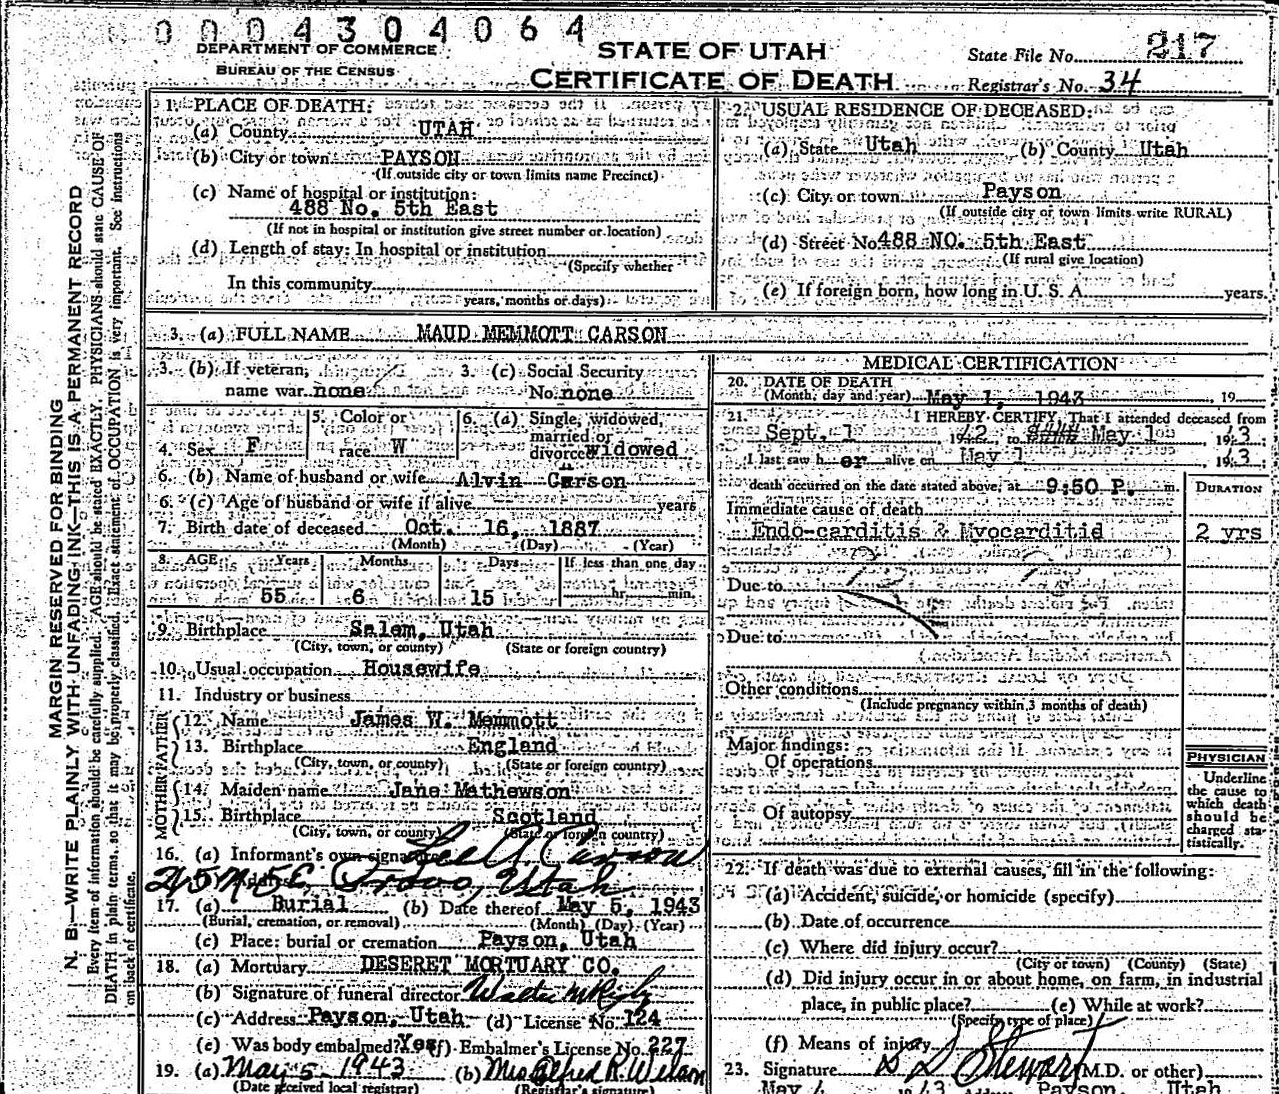 0004304064
DEPARTMENT OF COMMERCE
BUREAU OF THE CENSUS
STATE OF UTAH
CERTIFICATE OF DEATH
State File No. 217
Registrar's No. 34
MARGIN RESERVED FOR BINDING
N. B.—WRITE PLAINLY WITH UNFADING INK—THIS IS A PERMANENT RECORD
Every item of information should be carefully supplied. AGE should be stated EXACTLY. PHYSICIANS should state CAUSE OF
DEATH in plain terms, so that it may be properly classified. Exact statement of OCCUPATION is very important. See instructions
on back of certificate.
1. PLACE OF DEATH:
(a) County UTAH
(b) City or town PAYSON
(If outside city or town limits name Precinct)
(c) Name of hospital or institution:
488 No. 5th East
(If not in hospital or institution give street number or location)
(d) Length of stay: In hospital or institution
(Specify whether
In this community
years, months or days)
2. USUAL RESIDENCE OF DECEASED:
(a) State Utah (b) County Utah
(c) City or town Payson
(If outside city or town limits write RURAL)
(d) Street No. 488 NO. 5th East
(If rural give location)
(e) If foreign born, how long in U. S. A. years.
3. (a) FULL NAME MAUD MEMMOTT CARSON
3. (b) If veteran, 3. (c) Social Security
name war none No. none
4. Sex F 5. Color or race W 6. (a) Single, widowed, married or divorced widowed
6. (b) Name of husband or wife Alvin Carson
6. (c) Age of husband or wife if alive years
7. Birth date of deceased Oct. 16, 1887
(Month) (Day) (Year)
8. AGE Years Months Days If less than one day
55 6 15 hr. min.
9. Birthplace Salem, Utah
(City, town, or county) (State or foreign country)
10. Usual occupation Housewife
11. Industry or business
FATHER
12. Name James W. Memmott
13. Birthplace England
(City, town, or county) (State or foreign country)
MOTHER
14. Maiden name Jane Mathewson
15. Birthplace Scotland
(City, town, or county) (State or foreign country)
16. (a) Informant's own signature Lee A. Carson
Provo, Utah
17. (a) Burial (b) Date thereof May 5, 1943
(Burial, cremation, or removal) (Month) (Day) (Year)
(c) Place: burial or cremation Payson, Utah
18. (a) Mortuary DESERET MORTUARY CO.
(b) Signature of funeral director Walter
(c) Address Payson, Utah (d) License No. 124
(e) Was body embalmed? Yes (f) Embalmer's License No. 227
19. (a) May 5 - 1943 (b) Mrs Alfred R. Wilson
(Date received local registrar) (Registrar's signature)
MEDICAL CERTIFICATION
20. DATE OF DEATH
(Month, day and year) May 1, 1943, 19
21. I HEREBY CERTIFY, That I attended deceased from
Sept. 1 1942, to May 1 1943
I last saw her alive on May 1 1943
death occurred on the date stated above, at 9:50 P. m.
DURATION
Immediate cause of death
Endo-carditis & Myocarditid 2 yrs
Due to
Due to
Other conditions
(Include pregnancy within 3 months of death)
Major findings:
Of operations
Of autopsy
PHYSICIAN
Underline
the cause to
which death
should be
charged sta-
tistically.
22. If death was due to external causes, fill in the following:
(a) Accident, suicide, or homicide (specify)
(b) Date of occurrence
(c) Where did injury occur?
(City or town) (County) (State)
(d) Did injury occur in or about home, on farm, in industrial
place, in public place? (e) While at work?
(Specify type of place)
(f) Means of injury
23. Signature Stewart (M.D. or other)
May 4 1943 Address Payson, Utah